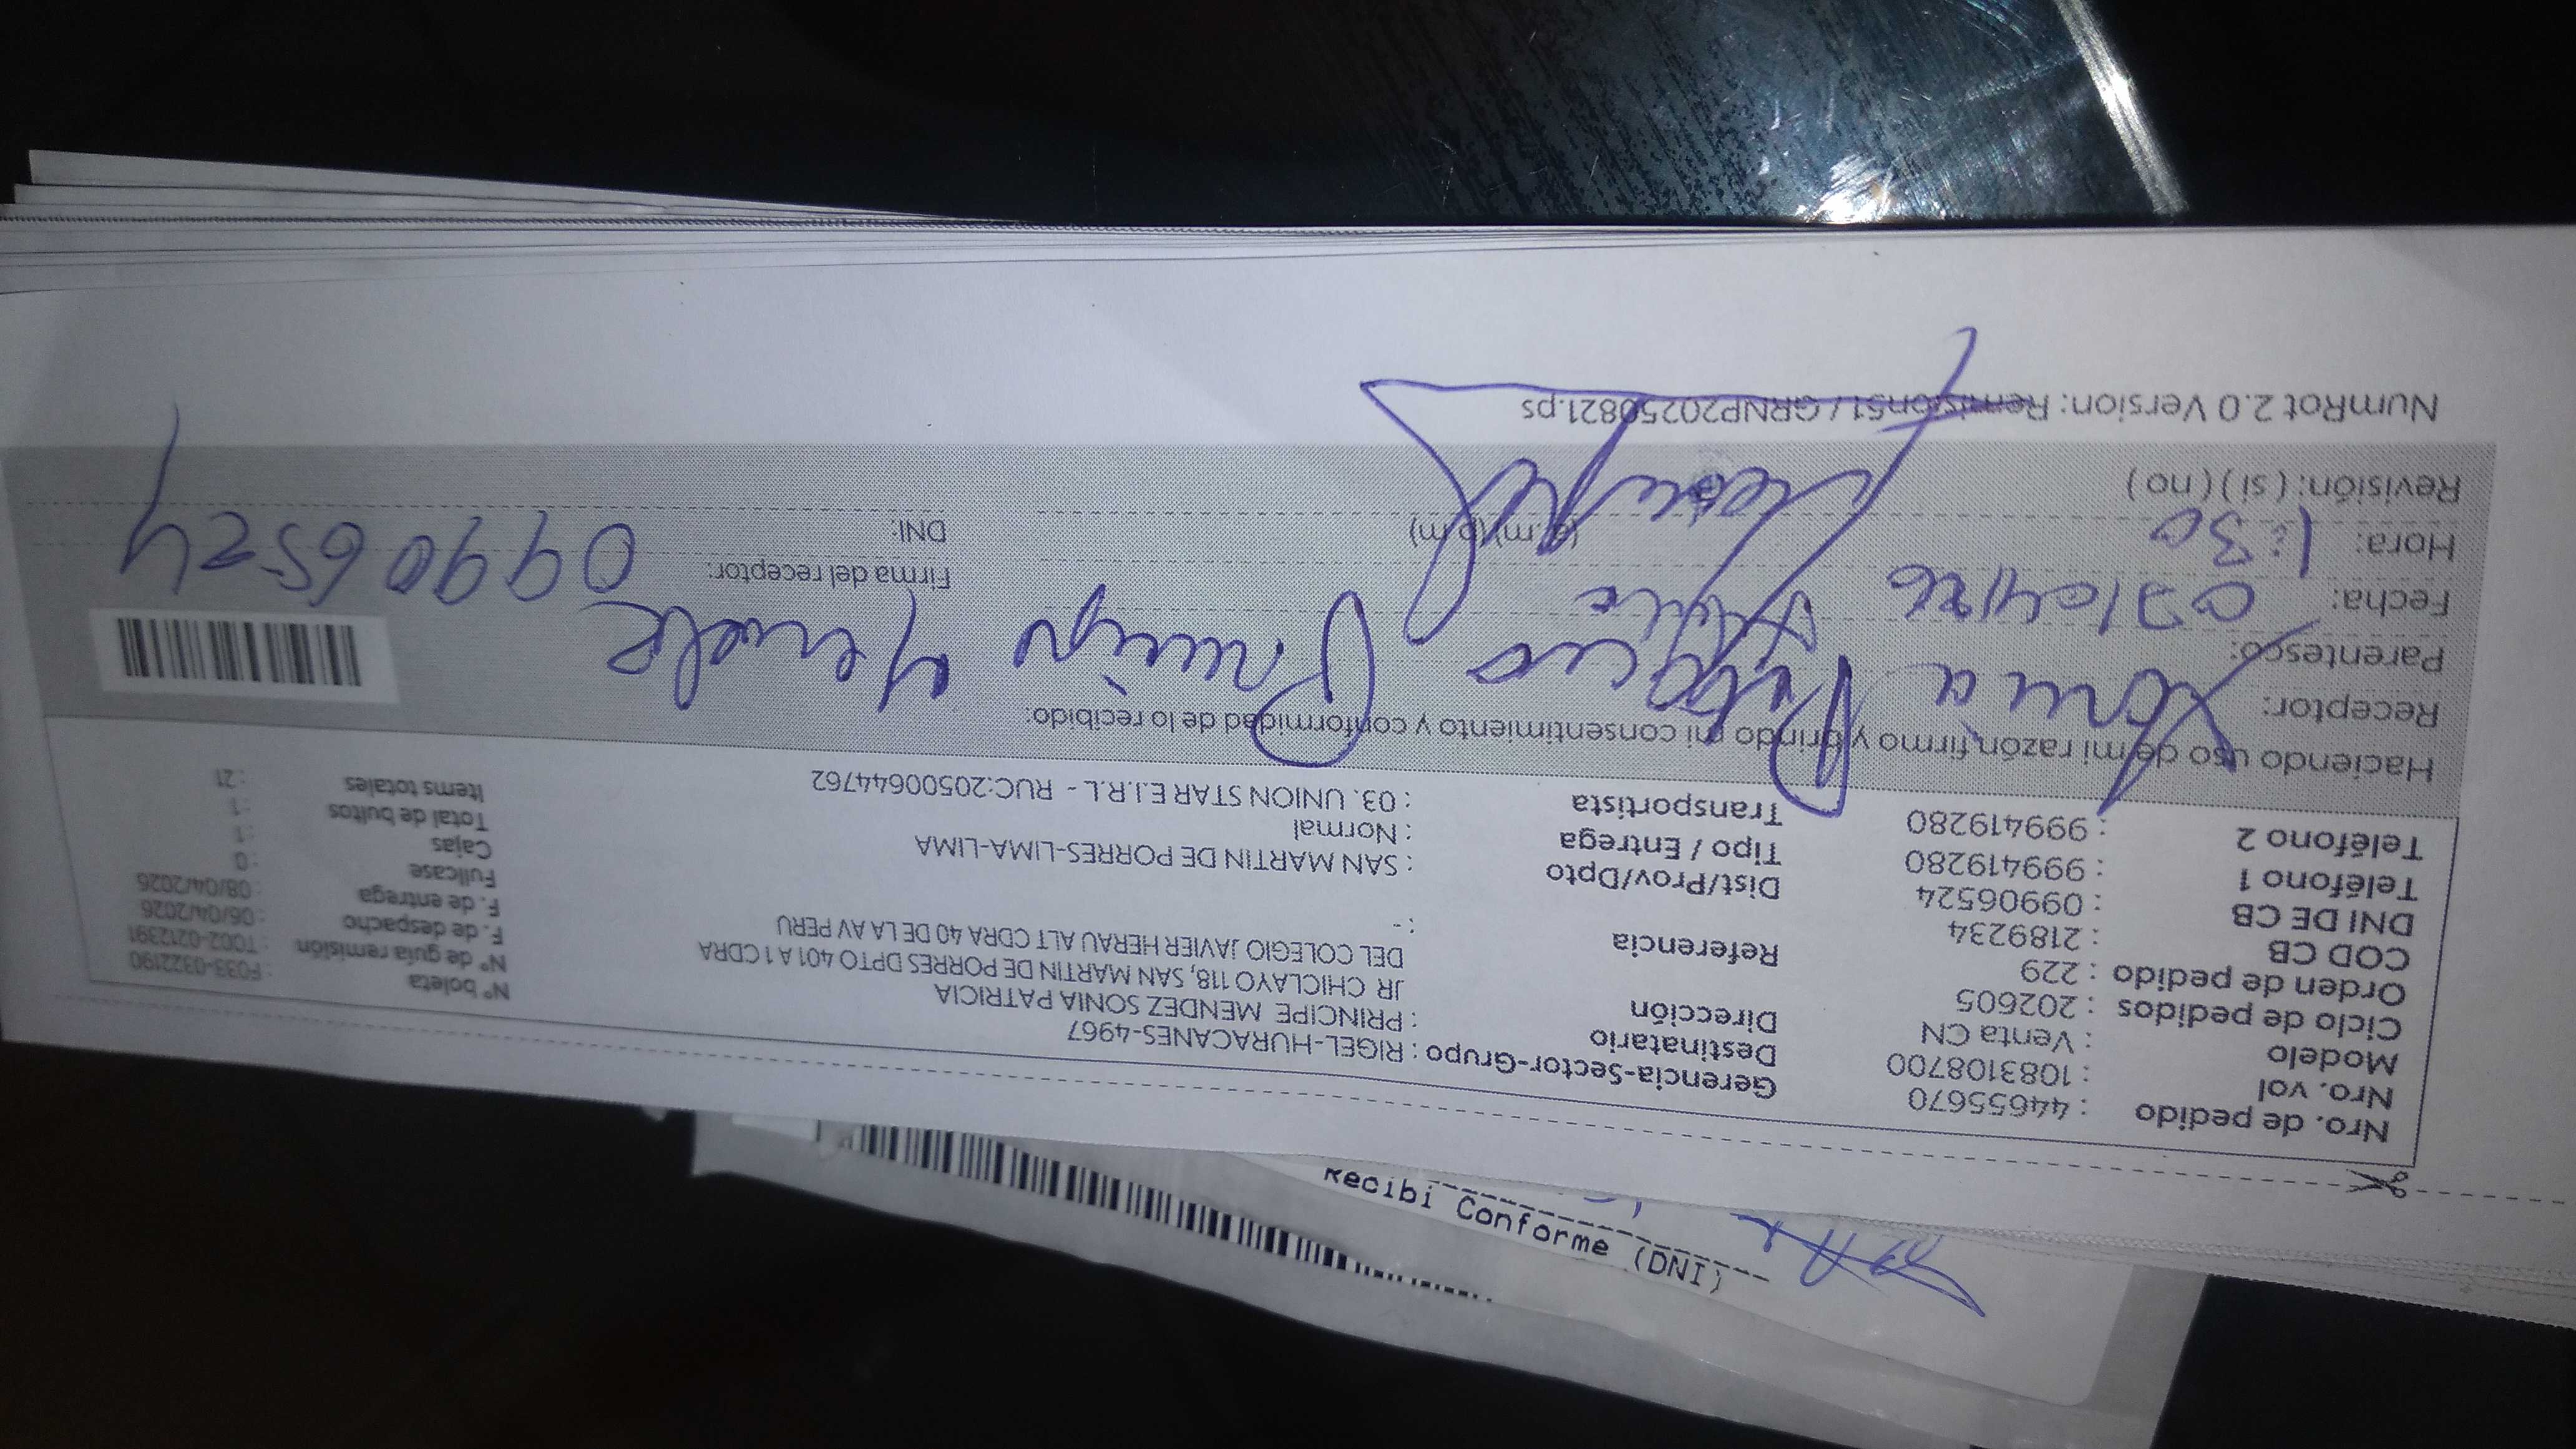 Nro. de pedido : 44655670
Nro. vol : 1083108700
Modelo : Venta CN
Ciclo de pedidos : 202605
Orden de pedido : 229
COD CB : 2189234
DNI DE CB : 09906524
Teléfono 1 : 999419280
Teléfono 2 : 999419280
Gerencia-Sector-Grupo : RIGEL-HURACANES-4967
Destinatario : PRINCIPE MENDEZ SONIA PATRICIA
Dirección JR CHICLAYO 118, SAN MARTIN DE PORRES DPTO 401 A 1 CDRA
DEL COLEGIO JAVIER HERAU ALT CDRA 40 DE LA AV PERU
Referencia : -
Dist/Prov/Dpto : SAN MARTIN DE PORRES-LIMA-LIMA
Tipo / Entrega : Normal
Transportista : 03. UNION STAR E.I.R.L - RUC:20500644762
N° boleta : F033-0322190
N° de guía remisión : T002-0212391
F. de despacho : 06/04/2026
F. de entrega : 08/04/2026
Fullcase : 0
Cajas : 1
Total de bultos : 1
Items totales : 21
Haciendo uso de mi razón firmo y brindo mi consentimiento y conformidad de lo recibido:
Receptor: Sonia Patricia Principe Mendez
Parentesco:
Fecha: 07/04/26
Hora: 1:30 (a.m)(p.m)
Revisión: (si) (no)
Firma del receptor:
DNI: 09906524
NumRot 2.0 Version: Remision51 / GRNP20250821.ps
Recibi Conforme (DNI)